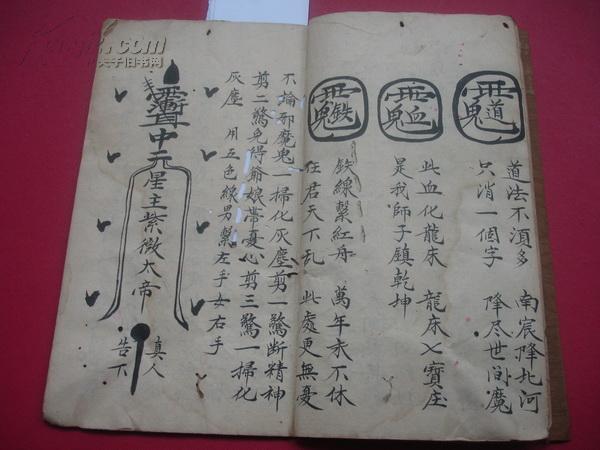 道法不須多 南宸降北河
只消一個字 降尽世間魔
此血化龍床 龍床七寶庄
是我師子鎮乾坤
鉄線繫紅舟 萬年不休
任君天下乱 此處更無憂
不掄邪魔鬼一掃化灰塵剪一驚斷精神
剪二驚免得爺娘帶憂心剪三驚一掃化
灰塵 用五色線男繫左手女右手
中元星主紫微太帝
真人
告下
夫子旧书网